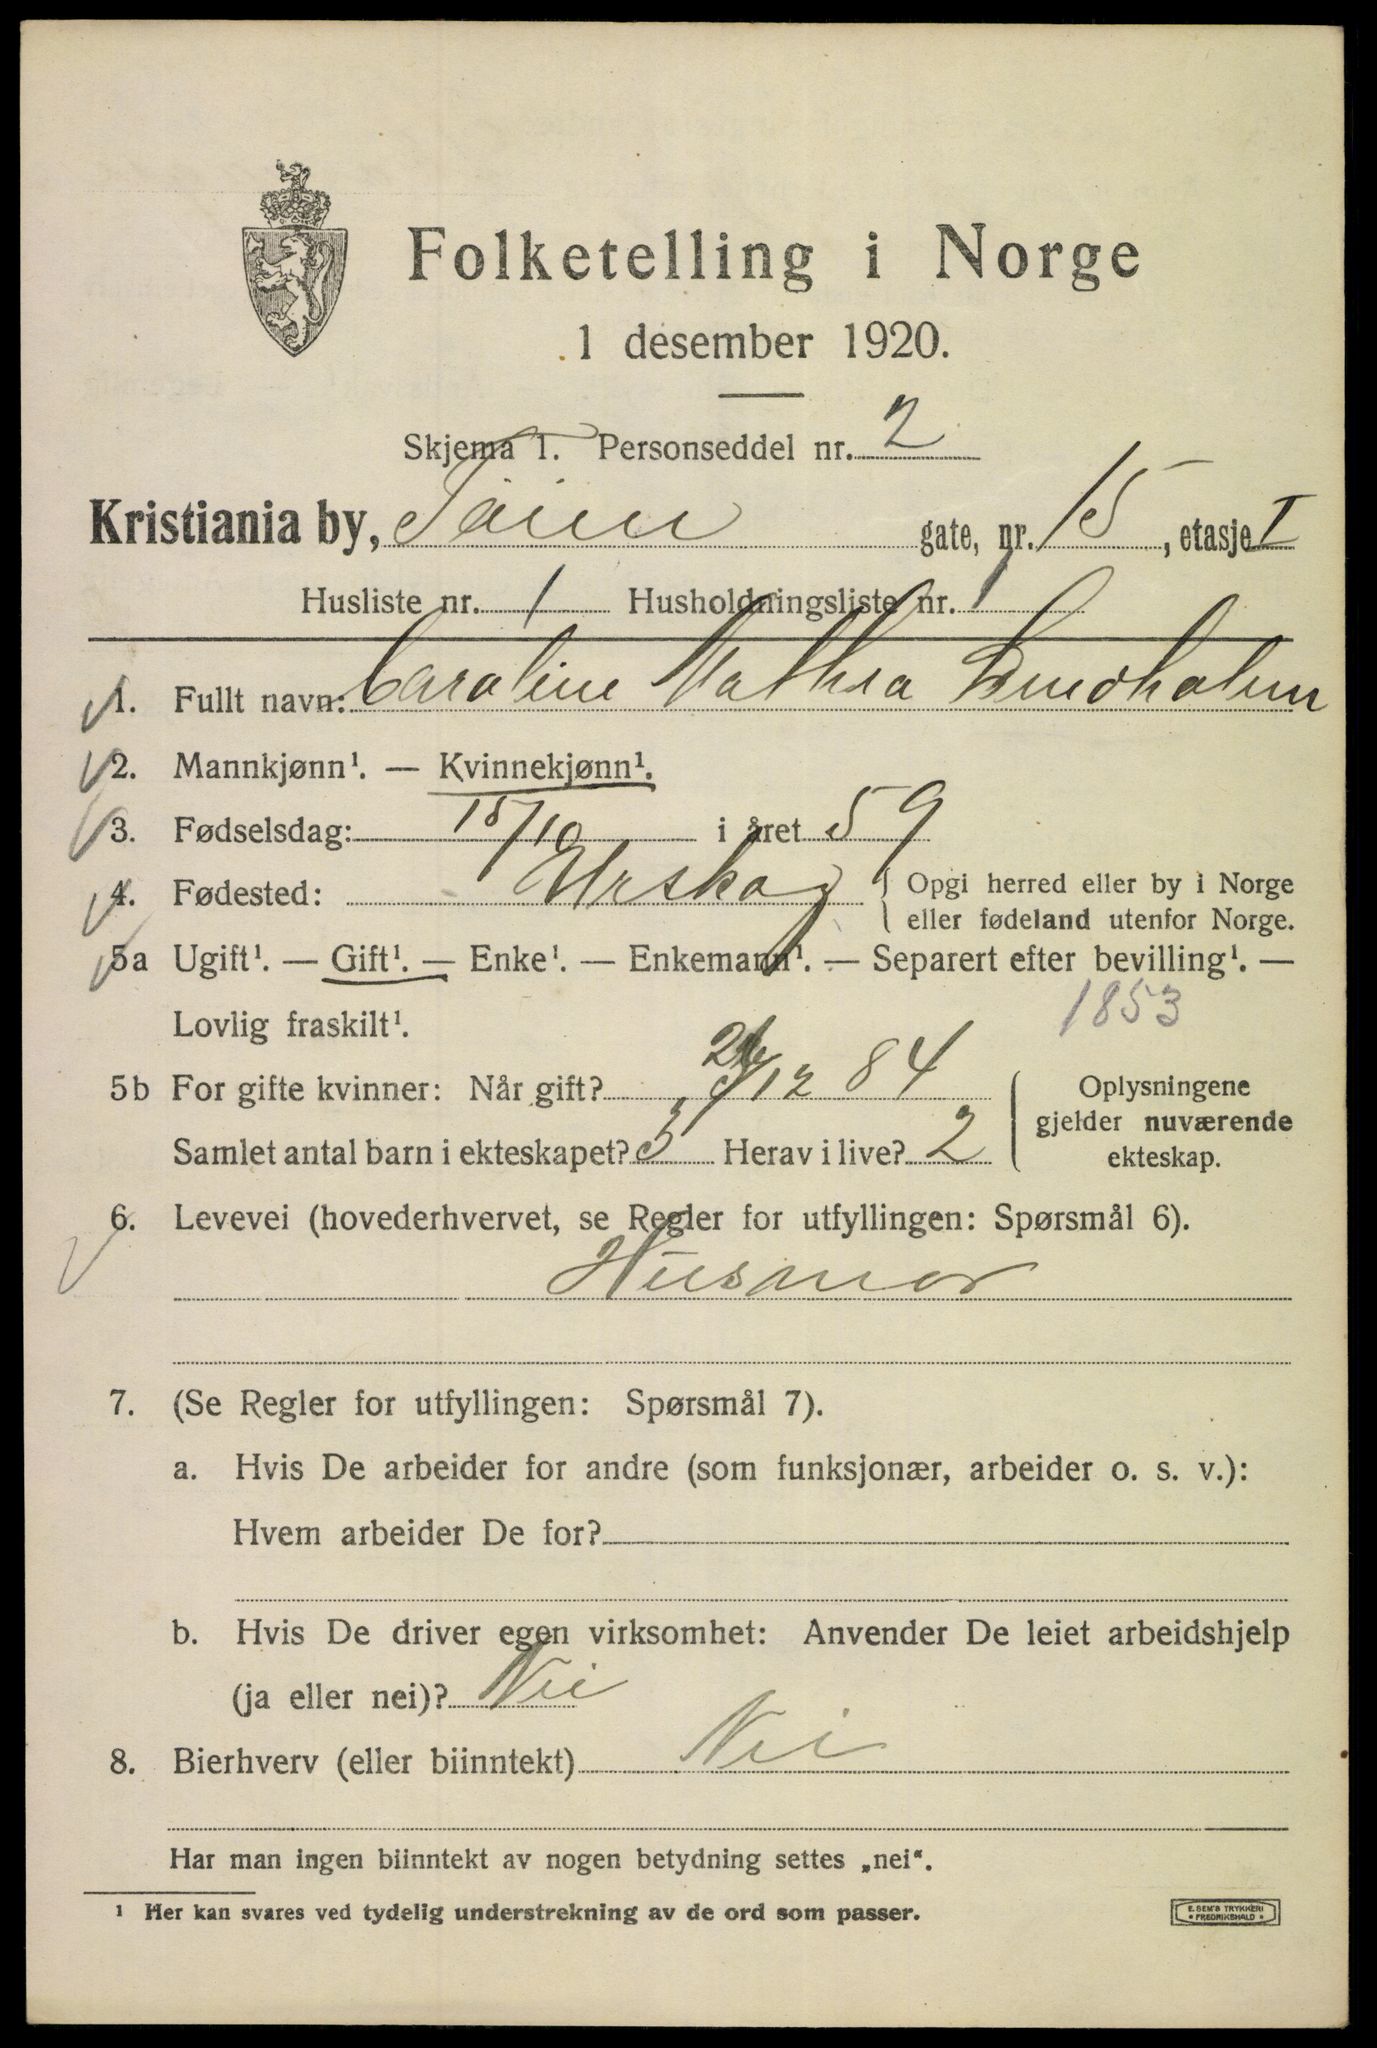 Folketelling i Norge
1 desember 1920.
Skjema 1. Personseddel nr. 2
Kristiania by, Tøien gate, nr. 15, etasje I
Husliste nr. 1 Husholdningsliste nr. 1
1. Fullt navn: Caroline Mathea Lundholm
2. Mannkjønn¹. — Kvinnekjønn¹.
3. Fødselsdag: 15/10 i året 59
4. Fødested: Urskog { Opgi herred eller by i Norge
eller fødeland utenfor Norge.
5a Ugift¹. — Gift¹. — Enke¹. — Enkemann¹. — Separert efter bevilling¹. —
Lovlig fraskilt¹. 1853
5b For gifte kvinner: Når gift? /12 84 Oplysningene
gjelder nuværende
Samlet antal barn i ekteskapet? 3 Herav i live? 2 ekteskap.
6. Levevei (hovederhvervet, se Regler for utfyllingen: Spørsmål 6).
Husmor
7. (Se Regler for utfyllingen: Spørsmål 7).
a. Hvis De arbeider for andre (som funksjonær, arbeider o. s. v.):
Hvem arbeider De for?
b. Hvis De driver egen virksomhet: Anvender De leiet arbeidshjelp
(ja eller nei)? Nei
8. Bierhverv (eller biinntekt) Nei
Har man ingen biinntekt av nogen betydning settes „nei“.
¹ Her kan svares ved tydelig understrekning av de ord som passer.
E. SEM'S TRYKKERI
• FREDRIKSHALD •